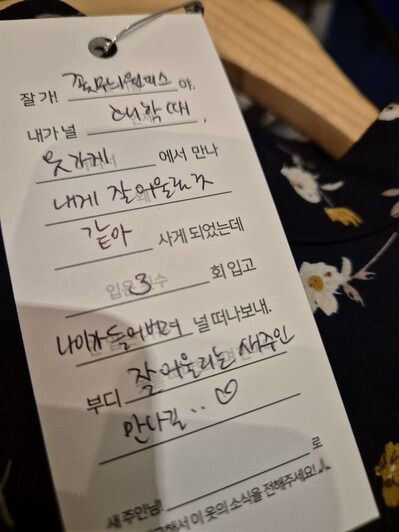 잘 가! 꽃무늬원피스 야.
내가 널 대학 때 ,
옷가게 에서 만나
내게 잘 어울릴 것
같아 사게 되었는데
3 회 입고
나이가 들어버려 널 떠나보내.
부디 잘 어울리는 새주인
만나길.. ♡
새 주인님! 로
해서 이 옷의 소식을 전해주세요!🙏